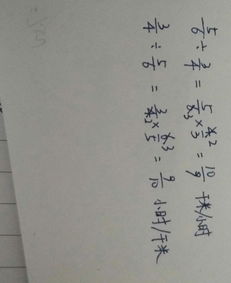 5/6 ÷ 3/4 = 5/6₃ × 4²/3 = 10/9 千米/小时
3/4 ÷ 5/6 = 3/4₂ × 6³/5 = 9/10 小时/千米